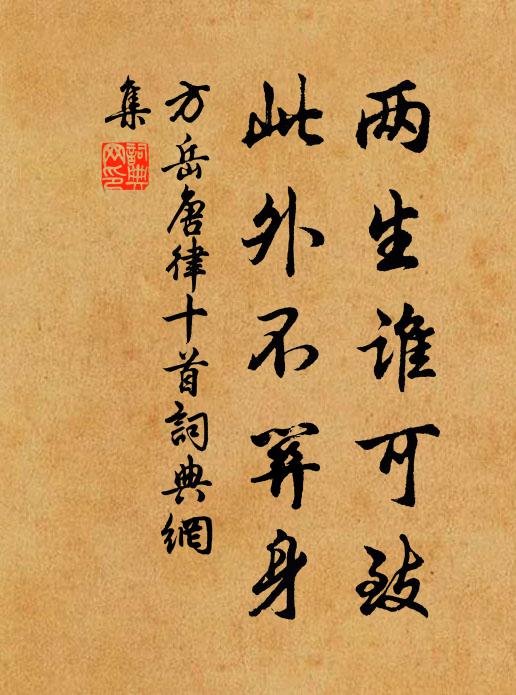 两生谁可致
此外不算身
方岳唐律十首詞典網
集
詞典網印